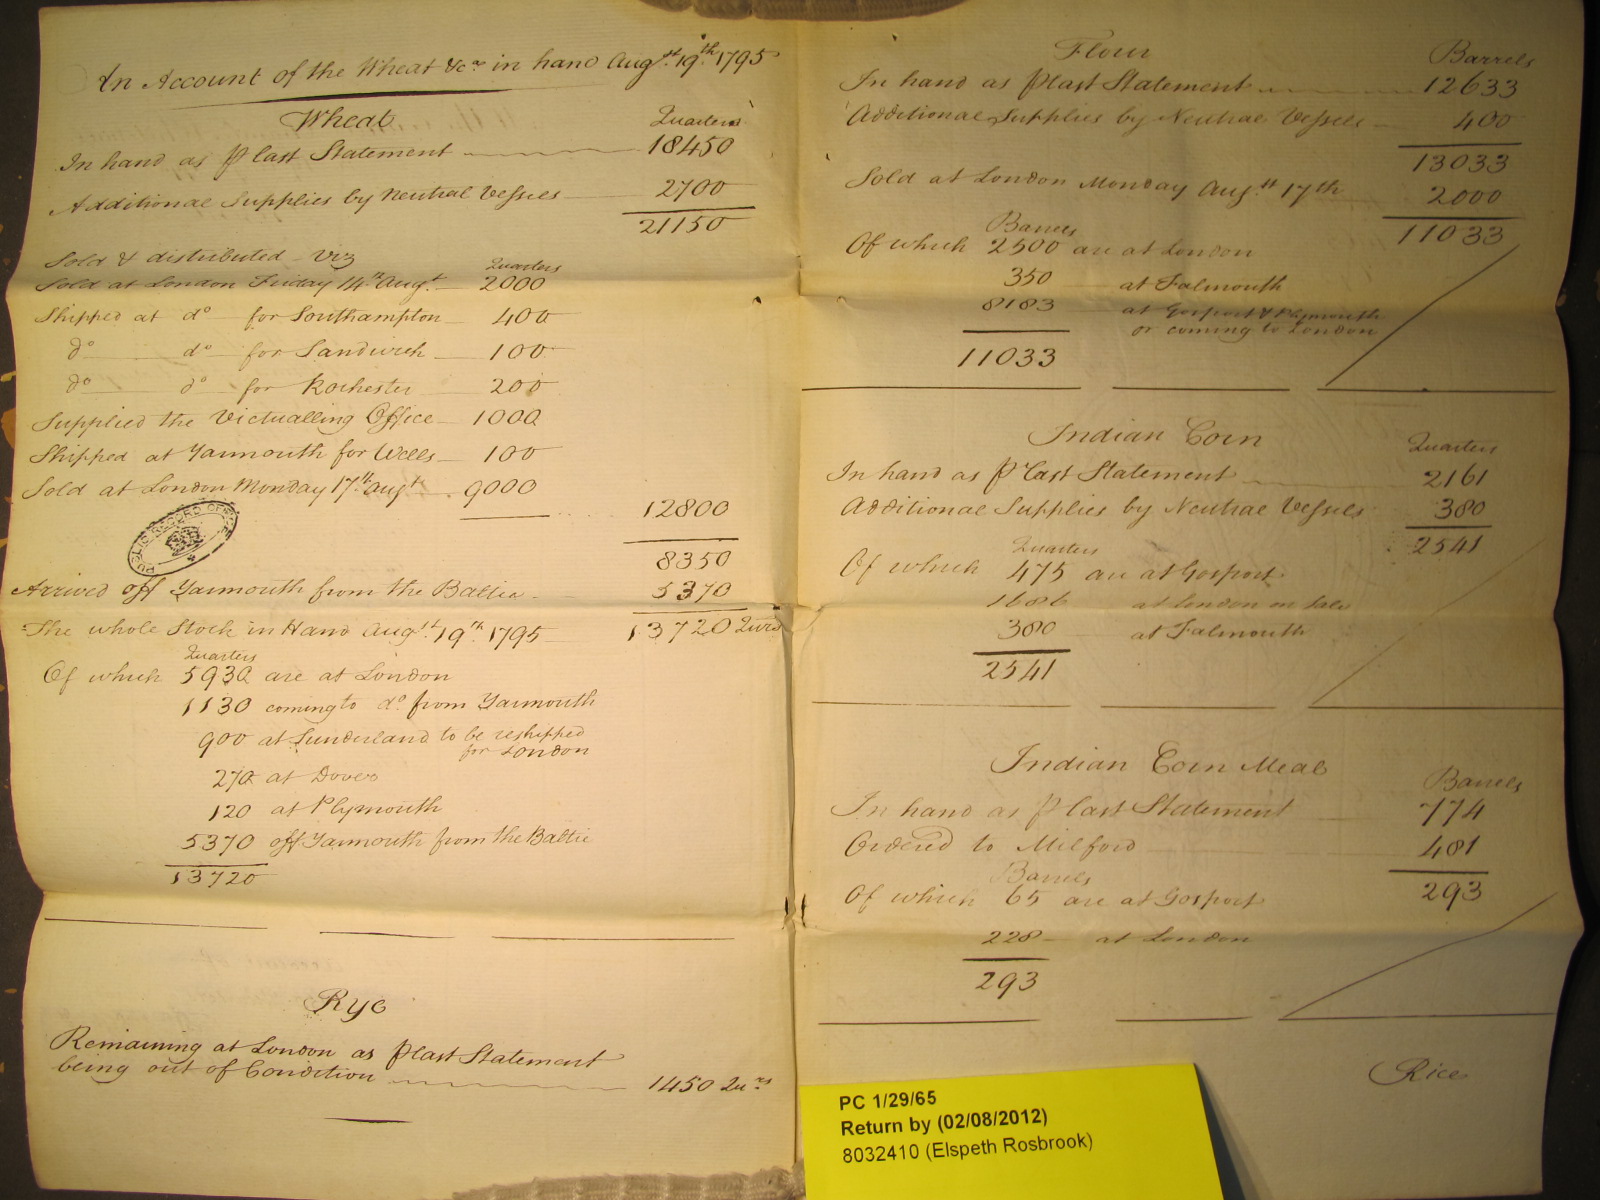 An Account of the Wheat &c.ª in hand Aug.st 19.th 1795
Wheat
Quarters
In hand as p last Statement 18450
Additional Supplies by Neutral Vessels 2700
21150
Sold & distributed Viz
Quarters
Sold at London Friday 14.th Aug.t 2000
Shipped at d.o for Southampton 400
d.o d.o for Sandwich 100
d.o d.o for Rochester 200
Supplied the Victualling Office 1000
Shipped at Yarmouth for Wells 100
Sold at London Monday 17.th Aug.t 9000
12800
PUBLIC RECORD OFFICE
8350
Arrived off Yarmouth from the Baltic 5370
The whole Stock in Hand Aug.st 19.th 1795 13720 Qurs
Quarters
Of which 5930 are at London
1130 coming to d.o from Yarmouth
900 at Sunderland to be reshipped
for London
270 at Dover
120 at Plymouth
5370 off Yarmouth from the Baltic
13720
Rye
Remaining at London as p last Statement
being out of Condition 1450 Qu.rs
Flour
Barrels
In hand as p last Statement 12633
Additional Supplies by Neutral Vessels 400
13033
Sold at London Monday Aug.st 17th 2000
11033
Barrels
Of which 2500 are at London
350 at Falmouth
8183 at Gosport & Plymouth
or coming to London
11033
Indian Corn
Quarters
In hand as p last Statement 2161
Additional Supplies by Neutral Vessels 380
2541
Quarters
Of which 475 are at Gosport
1686 at London on Sale
380 at Falmouth
2541
Indian Corn Meal
Barrels
In hand as p last Statement 774
Ordered to Milford 481
293
Barrels
Of which 65 are at Gosport
228 at London
293
Rice
PC 1/29/65
Return by (02/08/2012)
8032410 (Elspeth Rosbrook)